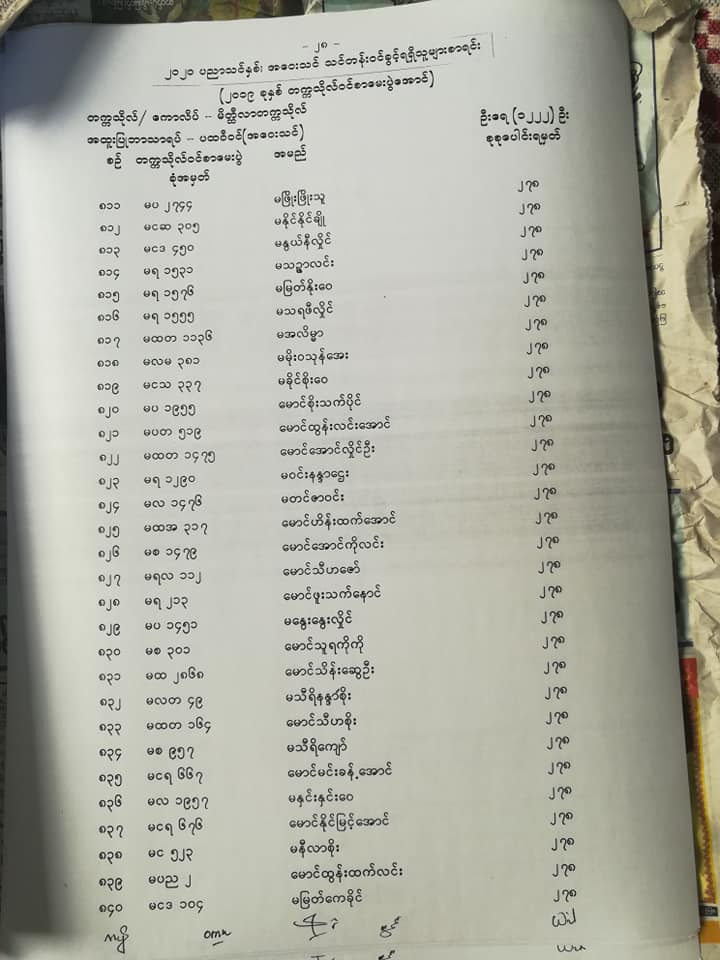 - ၂၈ -
၂၀၂၀ ပညာသင်နှစ်၊ အဝေးသင် သင်တန်းဝင်ခွင့်ရရှိသူများစာရင်း
(၂၀၁၉ ခုနှစ် တက္ကသိုလ်ဝင်စာမေးပွဲအောင်)
တက္ကသိုလ်/ ကောလိပ် - မိတ္ထီလာတက္ကသိုလ်
အထူးပြုဘာသာရပ် - ပထဝီဝင်(အဝေးသင်) ဦးရေ (၁၂၂၂) ဦး
စဉ် တက္ကသိုလ်ဝင်စာမေးပွဲ အမည် စုစုပေါင်းရမှတ်
ခုံအမှတ်
၈၁၁ မပ ၂၇၄၄ မဖြိုးဖြိုးသူ ၂၇၈
၈၁၂ မငဆ ၃၀၅ မနိုင်နိုင်ချို ၂၇၈
၈၁၃ မငဒ ၄၅၀ မနွယ်နီလှိုင် ၂၇၈
၈၁၄ မရ ၁၅၃၁ မသဥ္ဇာလင်း ၂၇၈
၈၁၅ မရ ၁၅၇၆ မမြတ်နိုးဝေ ၂၇၈
၈၁၆ မရ ၁၅၅၅ မသရဖီလှိုင် ၂၇၈
၈၁၇ မထတ ၁၁၃၆ မအလိမ္မာ ၂၇၈
၈၁၈ မလမ ၃၈၁ မမိုးဝသုန်အေး ၂၇၈
၈၁၉ မငသ ၃၃၇ မခိုင်စိုးဝေ ၂၇၈
၈၂၀ မပ ၁၉၅၅ မောင်စိုးသက်ပိုင် ၂၇၈
၈၂၁ မပတ ၅၁၉ မောင်ထွန်းလင်းအောင် ၂၇၈
၈၂၂ မထတ ၁၄၇၅ မောင်အောင်လှိုင်ဦး ၂၇၈
၈၂၃ မရ ၁၂၉၀ မဝင်းနန္ဒာဌေး ၂၇၈
၈၂၄ မလ ၁၄၇၆ မတင်ဇာဝင်း ၂၇၈
၈၂၅ မထအ ၃၁၇ မောင်ဟိန်းထက်အောင် ၂၇၈
၈၂၆ မစ ၁၄၇၉ မောင်အောင်ကိုလင်း ၂၇၈
၈၂၇ မရလ ၁၁၂ မောင်သီဟဇော် ၂၇၈
၈၂၈ မရ ၂၁၃ မောင်ဖူးသက်နောင် ၂၇၈
၈၂၉ မပ ၁၄၅၁ မနွေးနွေးလှိုင် ၂၇၈
၈၃၀ မစ ၃၀၁ မောင်သူရကိုကို ၂၇၈
၈၃၁ မထ ၂၈၆၈ မောင်သိန်းဆွေဦး ၂၇၈
၈၃၂ မလတ ၄၉ မသီရိနန္ဒာစိုး ၂၇၈
၈၃၃ မထတ ၁၆၄ မောင်သီဟစိုး ၂၇၈
၈၃၄ မစ ၉၅၇ မသီရိကျော် ၂၇၈
၈၃၅ မငရ ၆၆၇ မောင်မင်းခန့်အောင် ၂၇၈
၈၃၆ မလ ၁၉၅၇ မနှင်းနှင်းဝေ ၂၇၈
၈၃၇ မငရ ၆၇၆ မောင်နိုင်မြင့်အောင် ၂၇၈
၈၃၈ မင ၅၂၃ မနီလာစိုး ၂၇၈
၈၃၉ မပည ၂ မောင်ထွန်းထက်လင်း ၂၇၈
၈၄၀ မငဒ ၁၀၄ မမြတ်ကေခိုင် ၂၇၈